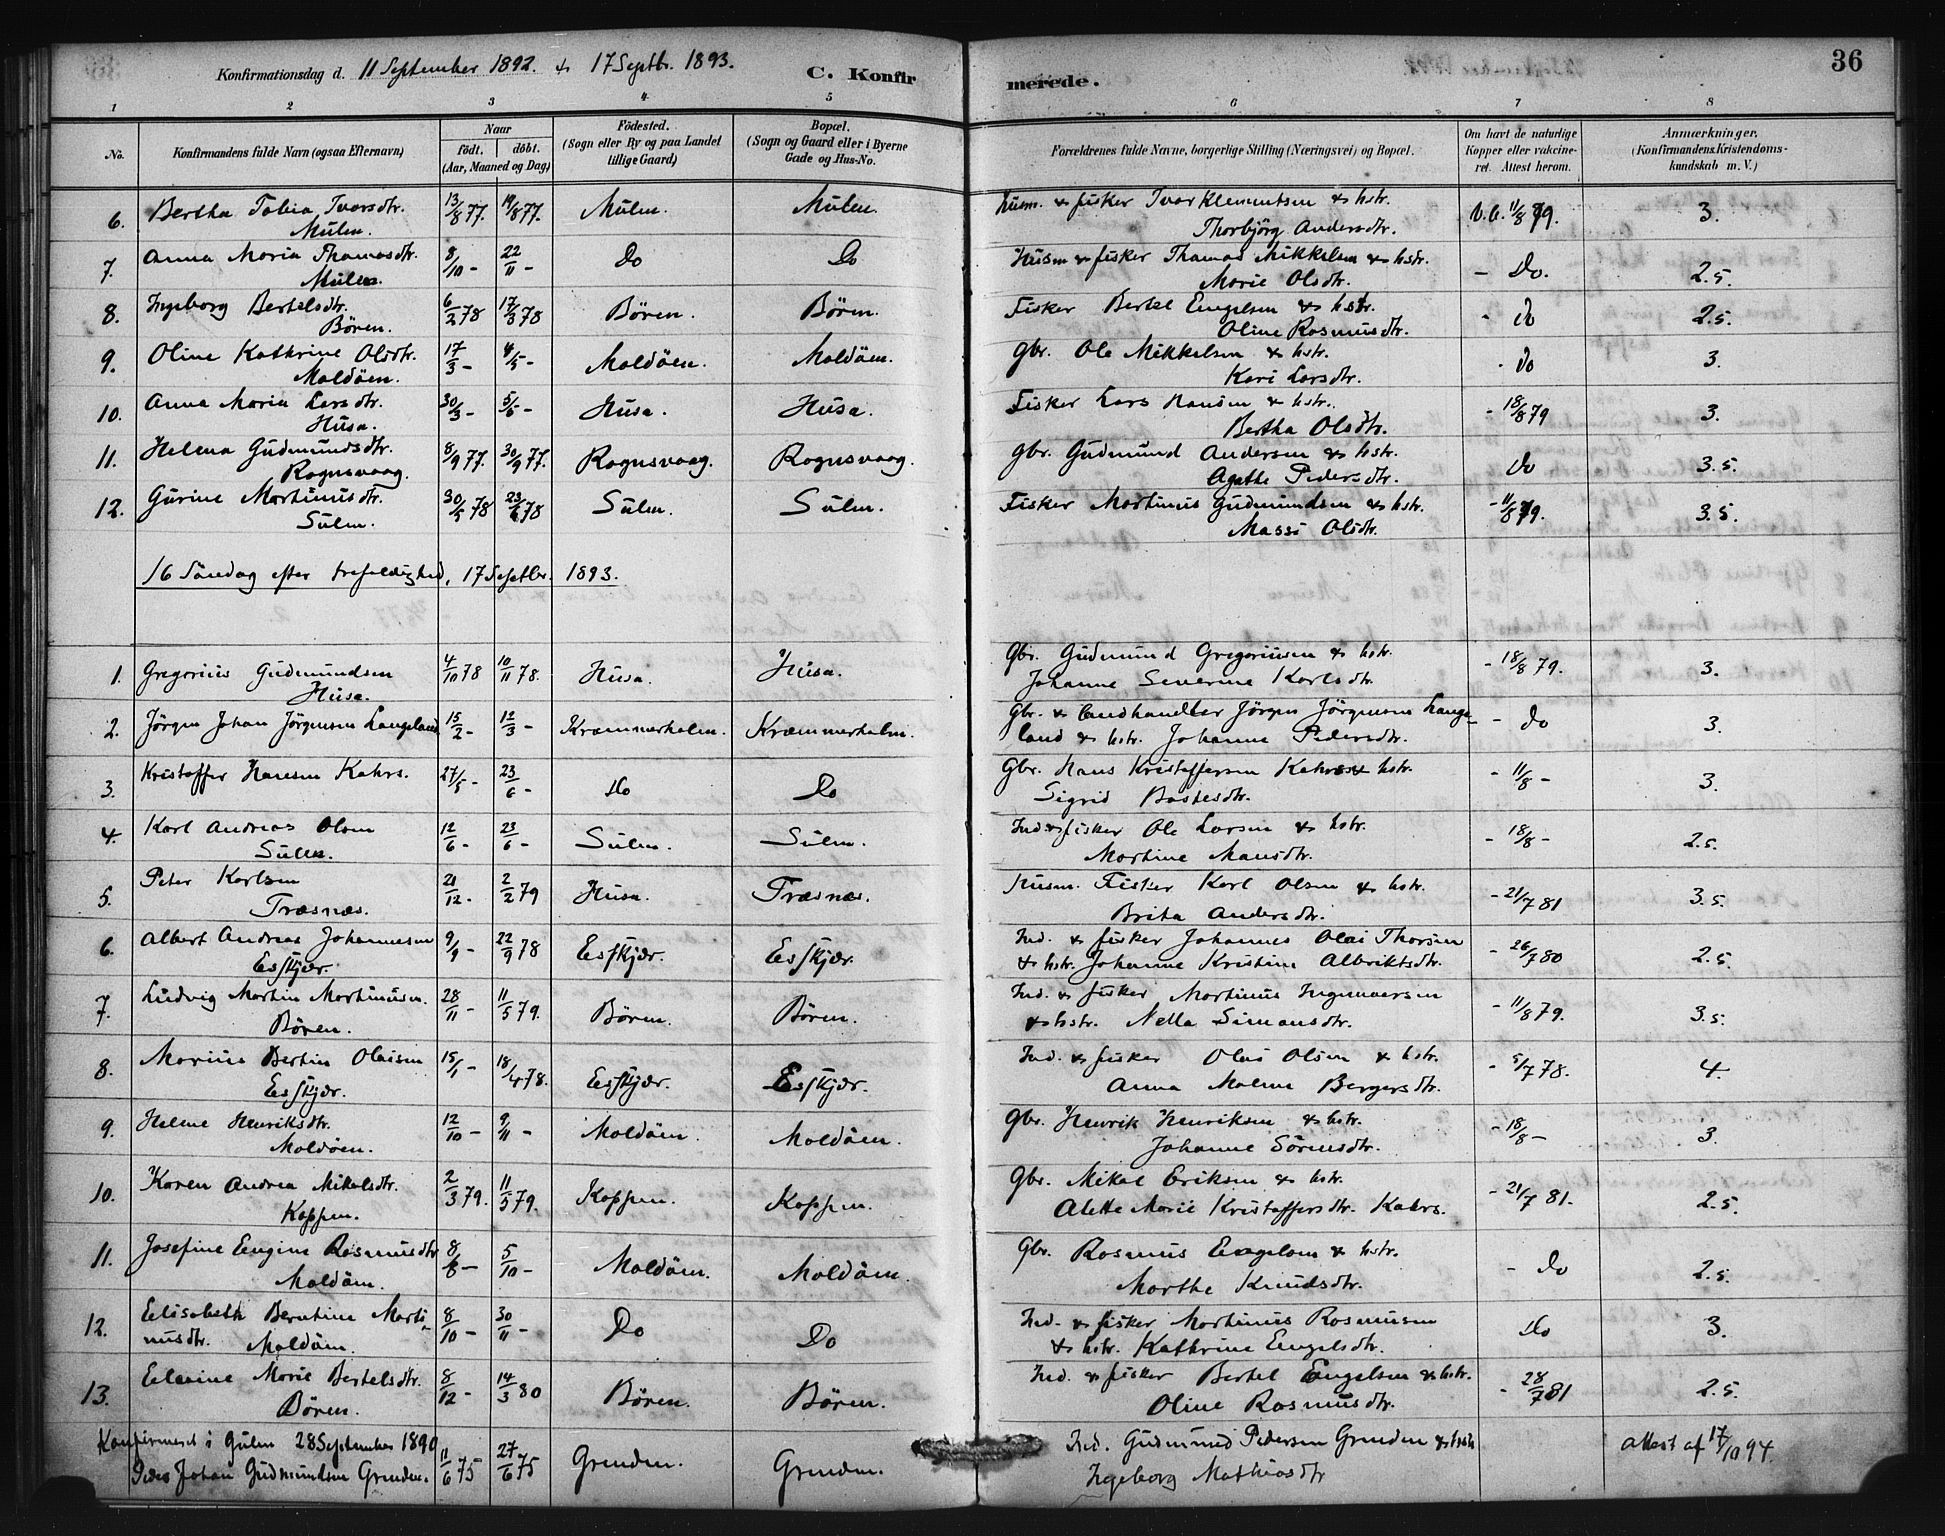 Konfirmationsdag d. 11 September 1892. & 17 Septbr. 1893. C. Konfirmerede. 36
1 2 3 4 5 6 7 8
No. Konfirmandens fulde Navn (ogsaa Efternavn) Naar födt. döbt. (Aar, Maaned og Dag) Födested. (Sogn eller By og paa Landet tillige Gaard) Bopæl. (Sogn og Gaard eller i Byerne Gade og Hus-No. Forældrenes fulde Navne, borgerlige Stilling (Næringsvei) og Bopæl. Om havt de naturlige Kopper eller vakcineret. Attest herom. Anmærkninger. (Konfirmandens Kristendomskundskab m. V.)
6. Bertha Tobia Ivarsdtr. 13/8 77. 19/8 77. Mulen. Mulen. Husm. & fisker Ivar Klementsen & hstr. v.b. 11/8 79. 3.
Mulen. Thorbjörg Andersdtr.
7. Anna Maria Thomasdtr. 8/10 - 22/11 - Do Do Husm & fisker Thomas Mikkelsen & hstr. - Do. 2.5.
Mulen. Marie Olsdtr.
8. Ingeborg Bertelsdtr. 6/2 78 17/3 78 Bören. Bören. Fisker Bertel Engelsen & hstr. - do 2.5.
Bören. Oline Rasmusdtr.
9. Oline Kathrine Olsdtr. 17/3 - 4/5 - Moldöen. Moldöen. Gbr. Ole Mikkelsen & hstr. - do 3.
Moldöen. Kari Larsdtr.
10. Anna Maria Larsdtr. 30/3 - 5/5 - Husa. Husa. Fisker Lars Hansen & hstr. - 18/8 79 3.
Husa. Bertha Olsdtr.
11. Helena Gudmundsdtr. 8/9 77. 30/9 77. Rognsvaag. Rognsvaag. Gbr. Gudmund Andersen & hstr. do 3.5.
Rognsvaag. Agathe Pedersdtr.
12. Gurine Martinusdtr. 30/5 78 23/6 78 Sulen. Sulen. Fisker Martinus Gudmundsen & hstr. - 11/8 79. 3.5.
Sulen. Massi Olsdtr.
16 Söndag efter trefoldighed, 17 Septbr. 1893.
1. Gregorius Gudmundsen 4/10 78 10/11 78. Husa. Husa. Gbr. Gudmund Gregoriusen & hstr. - 18/8 79. 3.
Husa. Johanne Severine Karlsdtr.
2. Jörgen Johan Jörgensen Langeland 15/2 - 12/3 - Kræmmerholm. Kræmmerholm. Gbr. & landhandler Jörgen Jörgensen Lange- - do 3.
land & hstr. Johanne Pedersdtr.
3. Kristoffer Hansen Kahrs. 27/5 - 23/6 - Do Do Gbr. Hans Kristoffersen Kahrs & hstr. - 11/8 - 3.
Sigrid Bastesdtr.
4. Karl Andreas Olsen 12/6 - 23/6 - Sulen. Sulen. Ind & fisker Ole Larsen & hstr. - 18/8 - 2.5.
Sulen. Martine Mansdtr.
5. Peter Karlsen 21/12 - 2/2 79 Husa. Træsnæs. Husm. Fisker Karl Olsen & hstr. - 21/7 81 3.5.
Træsnæs. Brita Andersdtr.
6. Albert Andreas Johannesen 9/9 - 22/9 78 Esskjær. Esskjær. Ind. & fisker Johannes Olai Thorsen - 26/7 80 2.5.
Esskjær. & hstr. Johanne Kristine Albriktsdtr.
7. Ludvig Martin Martinusen. 28/11 - 11/5 79. Bören. Bören. Ind. & fisker Martinus Ingemarsen - 11/8 79. 3.5.
Bören. & hstr. Nella Simonsdtr.
8. Marius Bertin Olaisen 15/1 - 18/4 78. Eesskjær. Eesskjær. Ind. & fisker Olai Olsen & hstr. - 5/7 78. 4.
Eesskjær. Anna Malene Bergersdtr.
9. Helene Henriksdtr. 12/10 - 9/11 - Moldöen. Moldöen. Gbr. Henrik Henriksen & hstr. - 18/8 - 3.
Moldöen. Johanne Sörensdtr.
10. Karen Andrea Mikalsdtr. 2/3 79. 11/5 79. Koppen. Koppen. Gbr. Mikal Eriksen & hstr. - 21/7 81. 2.5.
Koppen. Alette Marie Kristoffersdtr. Kahrs.
11. Josefine Eugine Rasmusdtr 8/8 - 5/10 - Moldöen. Moldöen. Gbr. Rasmus Engelsen & hstr. - do 2.5.
Moldöen. Marthe Knudsdtr.
12. Eelisabeth Berntine Marti- 8/10 - 30/11 - Do Do Ind. & fisker Martinus Rasmusen do 3.
nusdtr. Moldöen. & hstr. Kathrine Engelsdtr.
13. Eelevine Marie Bertelsdtr. 8/12 - 14/3 80 Bören. Bören. Ind. & fisker Bertel Engelsen & hstr. - 28/7 81 2.5.
Bören. Oline Rasmusdtr.
Konfirmeret i Gulen 28 September 1890 11/6 75 27/6 75 Grenden. Grenden. Ind. Gudmund Pedersen Grenden & hstr. attest af 17/10 94.
Peder Johan Gudmundsen Grenden. Ingeborg Mathiasdtr